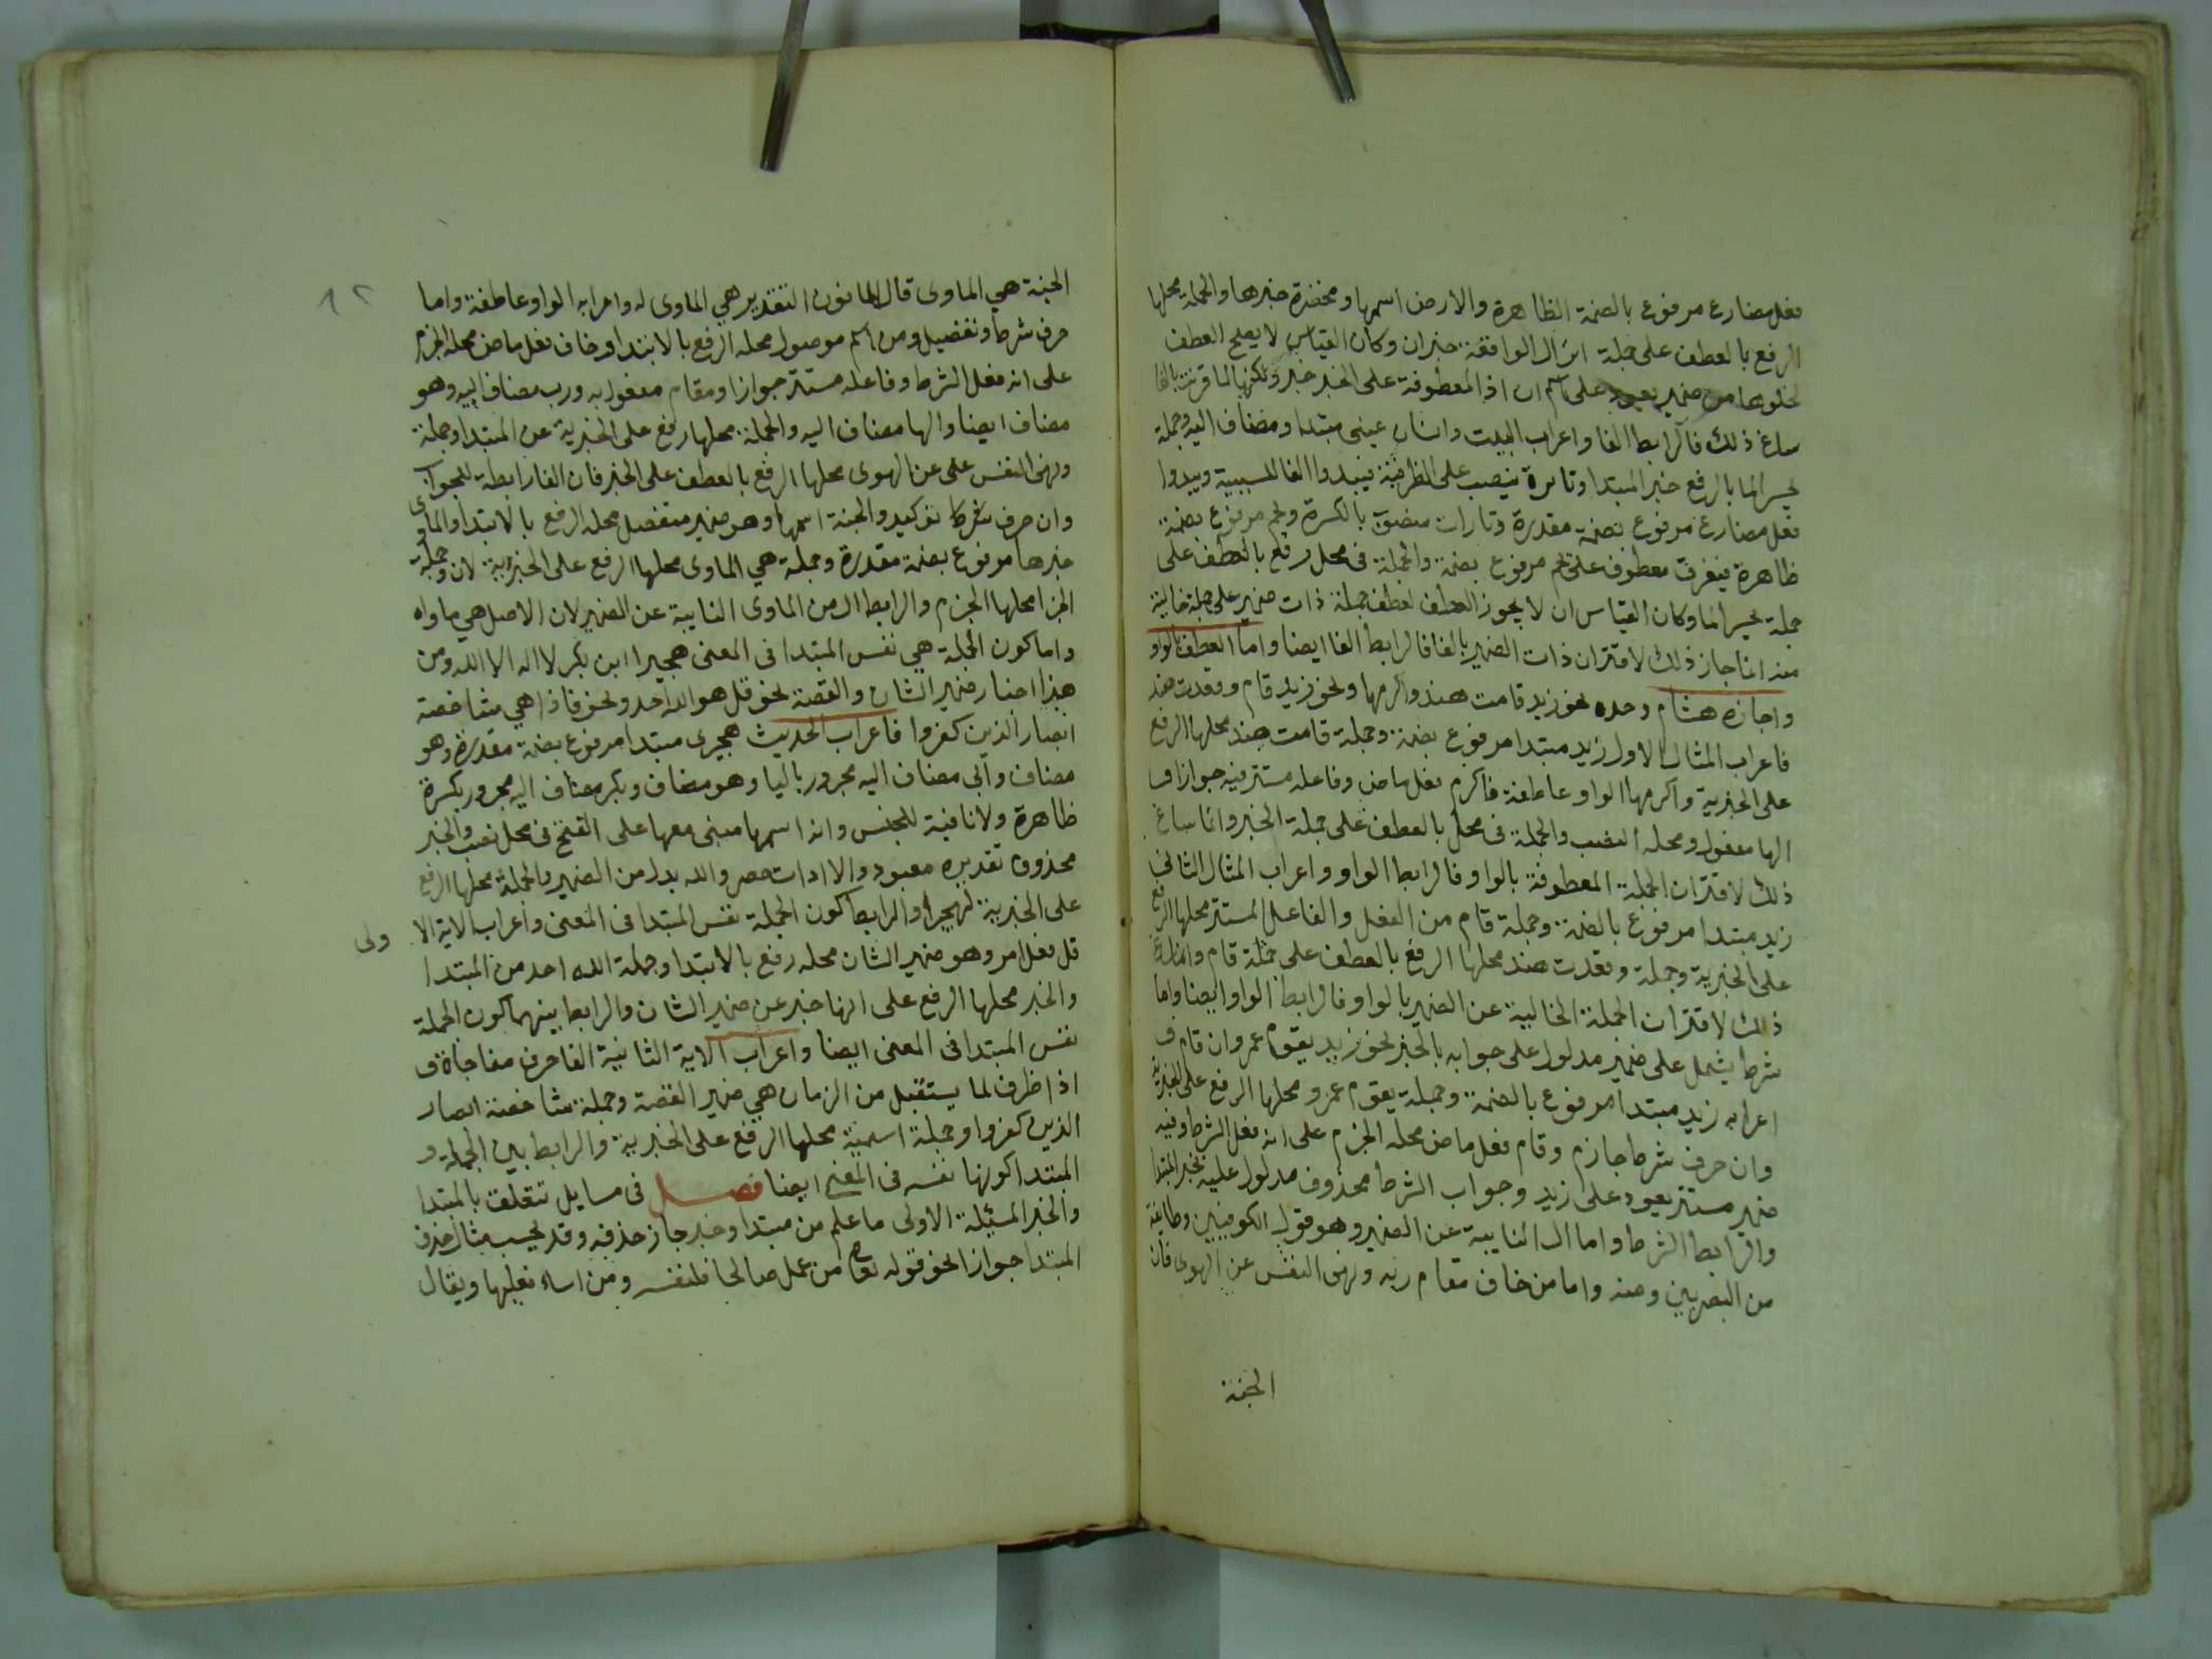 فعل مضارع مرفوع بالضمة الظاهرة والارض اسمها ومخضرة خبرها والجملة محلها
الرفع بالعطف على جملة انزال الواقعة خبران وكان القياس لا يصح العطف
لخلوها من ضمير يعود على اسم ان اذ المعطوفة على الخبر خبر ولكنها لما قرنت بالفا
ساغ ذلك فالرابط الفا واعراب البيت وانسان عيني مبتدا ومضاف اليه وجملة
يحسر الما بالرفع خبر المبتدا وتارة ينصب على الظرفية فيبدوا الفا للسببية ويبدوا
فعل مضارع مرفوع بضمة مقدرة وتارات منصوب بالكسرة ويجم مرفوع بضمة
ظاهرة فيغرق معطوف على يجم مرفوع بضمة والجملة في محل رفع بالعطف على
جملة يحسر الما وكان القياس ان لا يجوز العطف لعطف جملة ذات ضمير على جملة خالية
منه انما جاز ذلك لاقتران ذات الضمير بالفا فالرابط الفا ايضا واما العطف بالواو
واجازه هشام وحده نحو زيد قامت هند واكرمها ونحو زيد قام وقعدت هند
فاعراب المثال الاول زيد مبتدا مرفوع بضمة وجملة قامت هند محلها الرفع
على الخبرية واكرمها الواو عاطفة فاكرم فعل ماض وفاعله مستتر فيه جوازا و
الها مفعول ومحله النصب والجملة في محل بالعطف على جملة الخبر وانما ساغ
ذلك لاقتران الجملة المعطوفة بالواو فالرابط الواو واعراب المثال الثاني
زيد مبتدا مرفوع بالضمة وجملة قام من الفعل والفاعل المستتر محلها الرفع
على الخبرية وجملة وقعدت هند محلها الرفع بالعطف على جملة قام وانما ساغ
ذلك لاقتران الجملة الخالية عن الضمير بالواو فالرابط الواو ايضا واما
شرط يشمل على ضمير مدلول على جوابه بالخبر نحو زيد يقوم عمرو ان قام و
اعرابه زيد مبتدا مرفوع بالضمة وجملة يقوم عمرو محلها الرفع على الخبرية
وان حرف شرط جازم وقام فعل ماض محله الجزم على انه فعل الشرط وفيه
ضمير مستتر يعود على زيد وجواب الشرط محذوف مدلول عليه بخبر المبتدا
والرابط الشرط واما ال النايبة عن الضمير وهو قول الكوفيين وطايفة
من البصريين ومنه واما من خاف مقام ربه ونهى النفس عن الهوى فان
الجنة
الجنة هي الماوى قال المانعون التقدير هي الماوى له واعرابه الواو عاطفة واما
حرف شرط وتفضيل ومن اسم موصول محله الرفع بالابتدا وخاف فعل ماض محله الجزم
على انه فعل الشرط وفاعله مستتر جوازا ومقام مفعول به ورب مضاف اليه وهو
مضاف ايضا والها مضاف اليه والجملة محلها رفع على الخبرية عن المبتدا وجملة
ونهى النفس على عن الهوى محلها الرفع بالعطف على الخبر فان الفا رابطة للجواب
وان حرف توكيد والجنة اسمها وهو ضمير منفصل محله الرفع بالابتدا والماوى
خبرها مرفوع بضمة مقدرة وجملة هي الماوى محلها الرفع على الخبرية لان وجملة
الجزا محلها الجزم والرابط ال من الماوى النايبة عن الضمير لان الاصل هي ماواه
واما كون الجملة هي نفس المبتدا في المعنى هجيرا ابن بكر لا اله الا الله ومن
هذا اخبار ضمير الشان والقصة نحو قل هو الله احد ونحو فاذا هي شاخصة
ابصار الذين كفروا فاعراب الحديث هجيرى مبتدا مرفوع بضمة مقدرة وهو
مضاف وابي مضاف اليه مجرور باليا وهو مضاف وبكر مضاف اليه مجرور بكسرة
ظاهرة ولا نافية للجنس واله اسمها مبني معها على الفتح في محل نصب والخبر
محذوف تقديره معبود والا ادات حصر والله بدل من الضمير والجملة محلها الرفع
على الخبرية لهجيرا والرابط كون الجملة نفس المبتدا في المعنى واعراب الاية الا ولى
قل فعل امر وهو ضمير الشان محله رفع بالابتدا وجملة الله احد من المبتدا
والخبر محلها الرفع على انها خبر عن ضمير الشان والرابط بينهما كون الجملة
نفس المبتدا في المعنى ايضا واعراب الاية الثانية الفا حرف مفاجاة و
اذا ظرف لما يستقبل من الزمان هي ضمير القصة وجملة شاخصة ابصار
الذين كفروا وجملة اسمية محلها الرفع على الخبرية والرابط بين الجملة و
المبتدا كونها نفسه في المعنى ايضا فصل في مسايل تتعلق بالمبتدا
والخبر المسئلة الاولى ما علم من مبتدا وخبر جاز حذفه وقد يجب مثال حذف
المبتدا جوازا نحو قوله تعالى من عمل صالحا فلنفسه ومن اساء فعليها ويقال